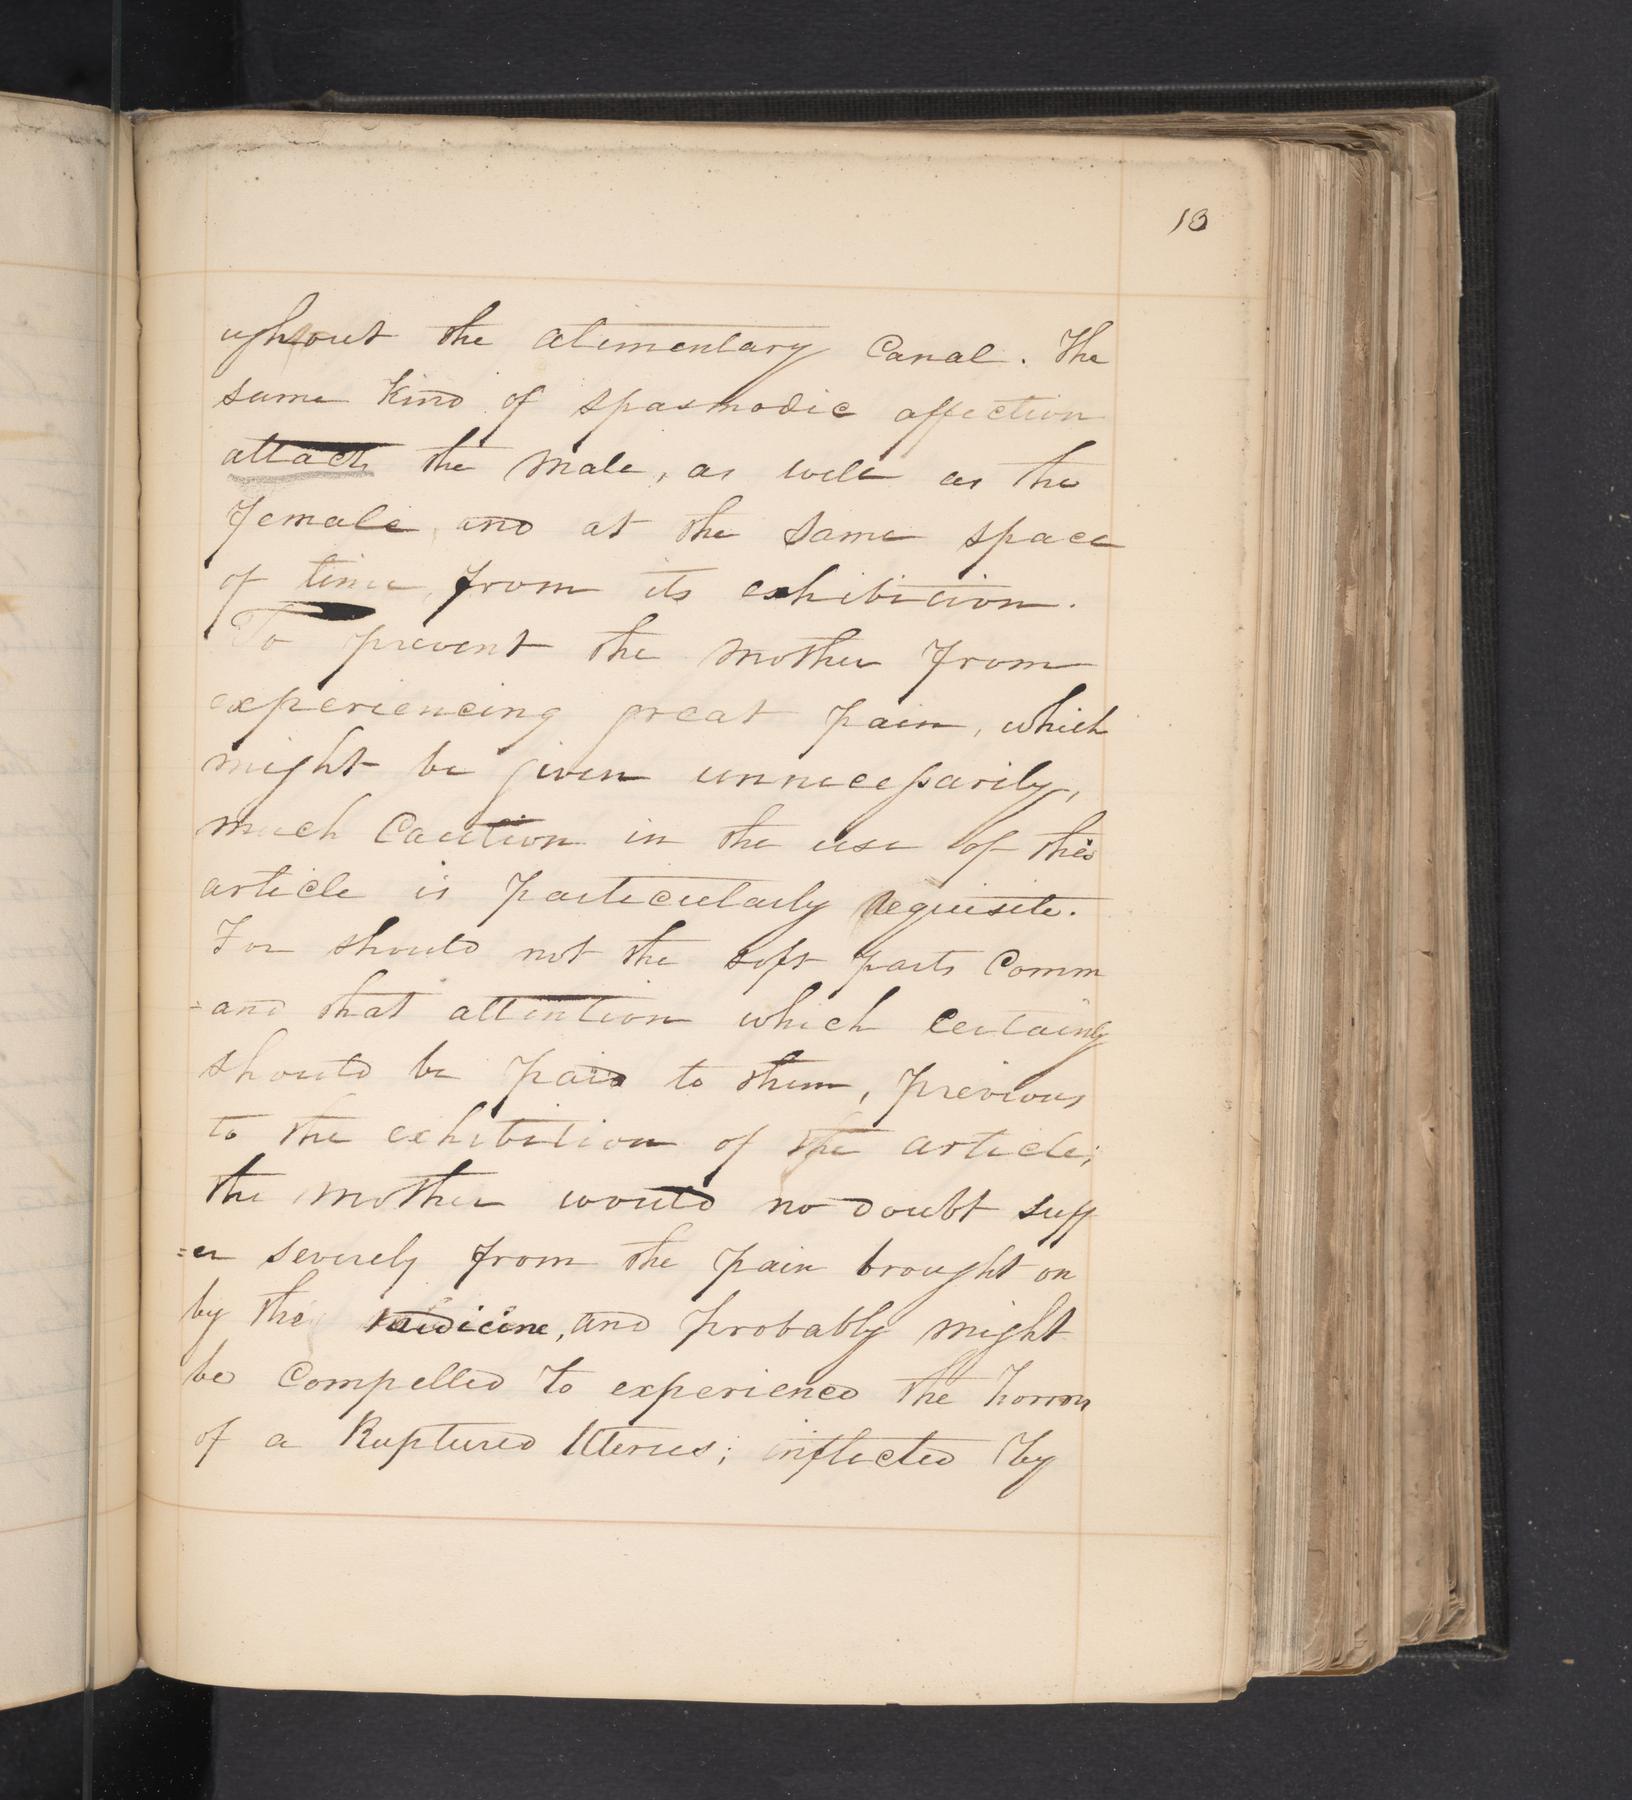 13
ughout the alimentary Canal. The
same kind of spasmodic affection
attack the Male, as well as the
Female, and at the same space
of time, from its exhibition.
To prevent the Mother from
experiencing great pain, which
might be given unnecessarily,
much Caution in the use of this
article is particularly requisite.
For should not the soft parts Comm
=and that attention which certainly
should be paid to them, previous
to the exhibition of the article;
the Mother would no doubt suff
=er severely from the pain brought on
by the medicine, and probably might
be Compelled to experience the horrors
of a Ruptured Uterus; inflicted by